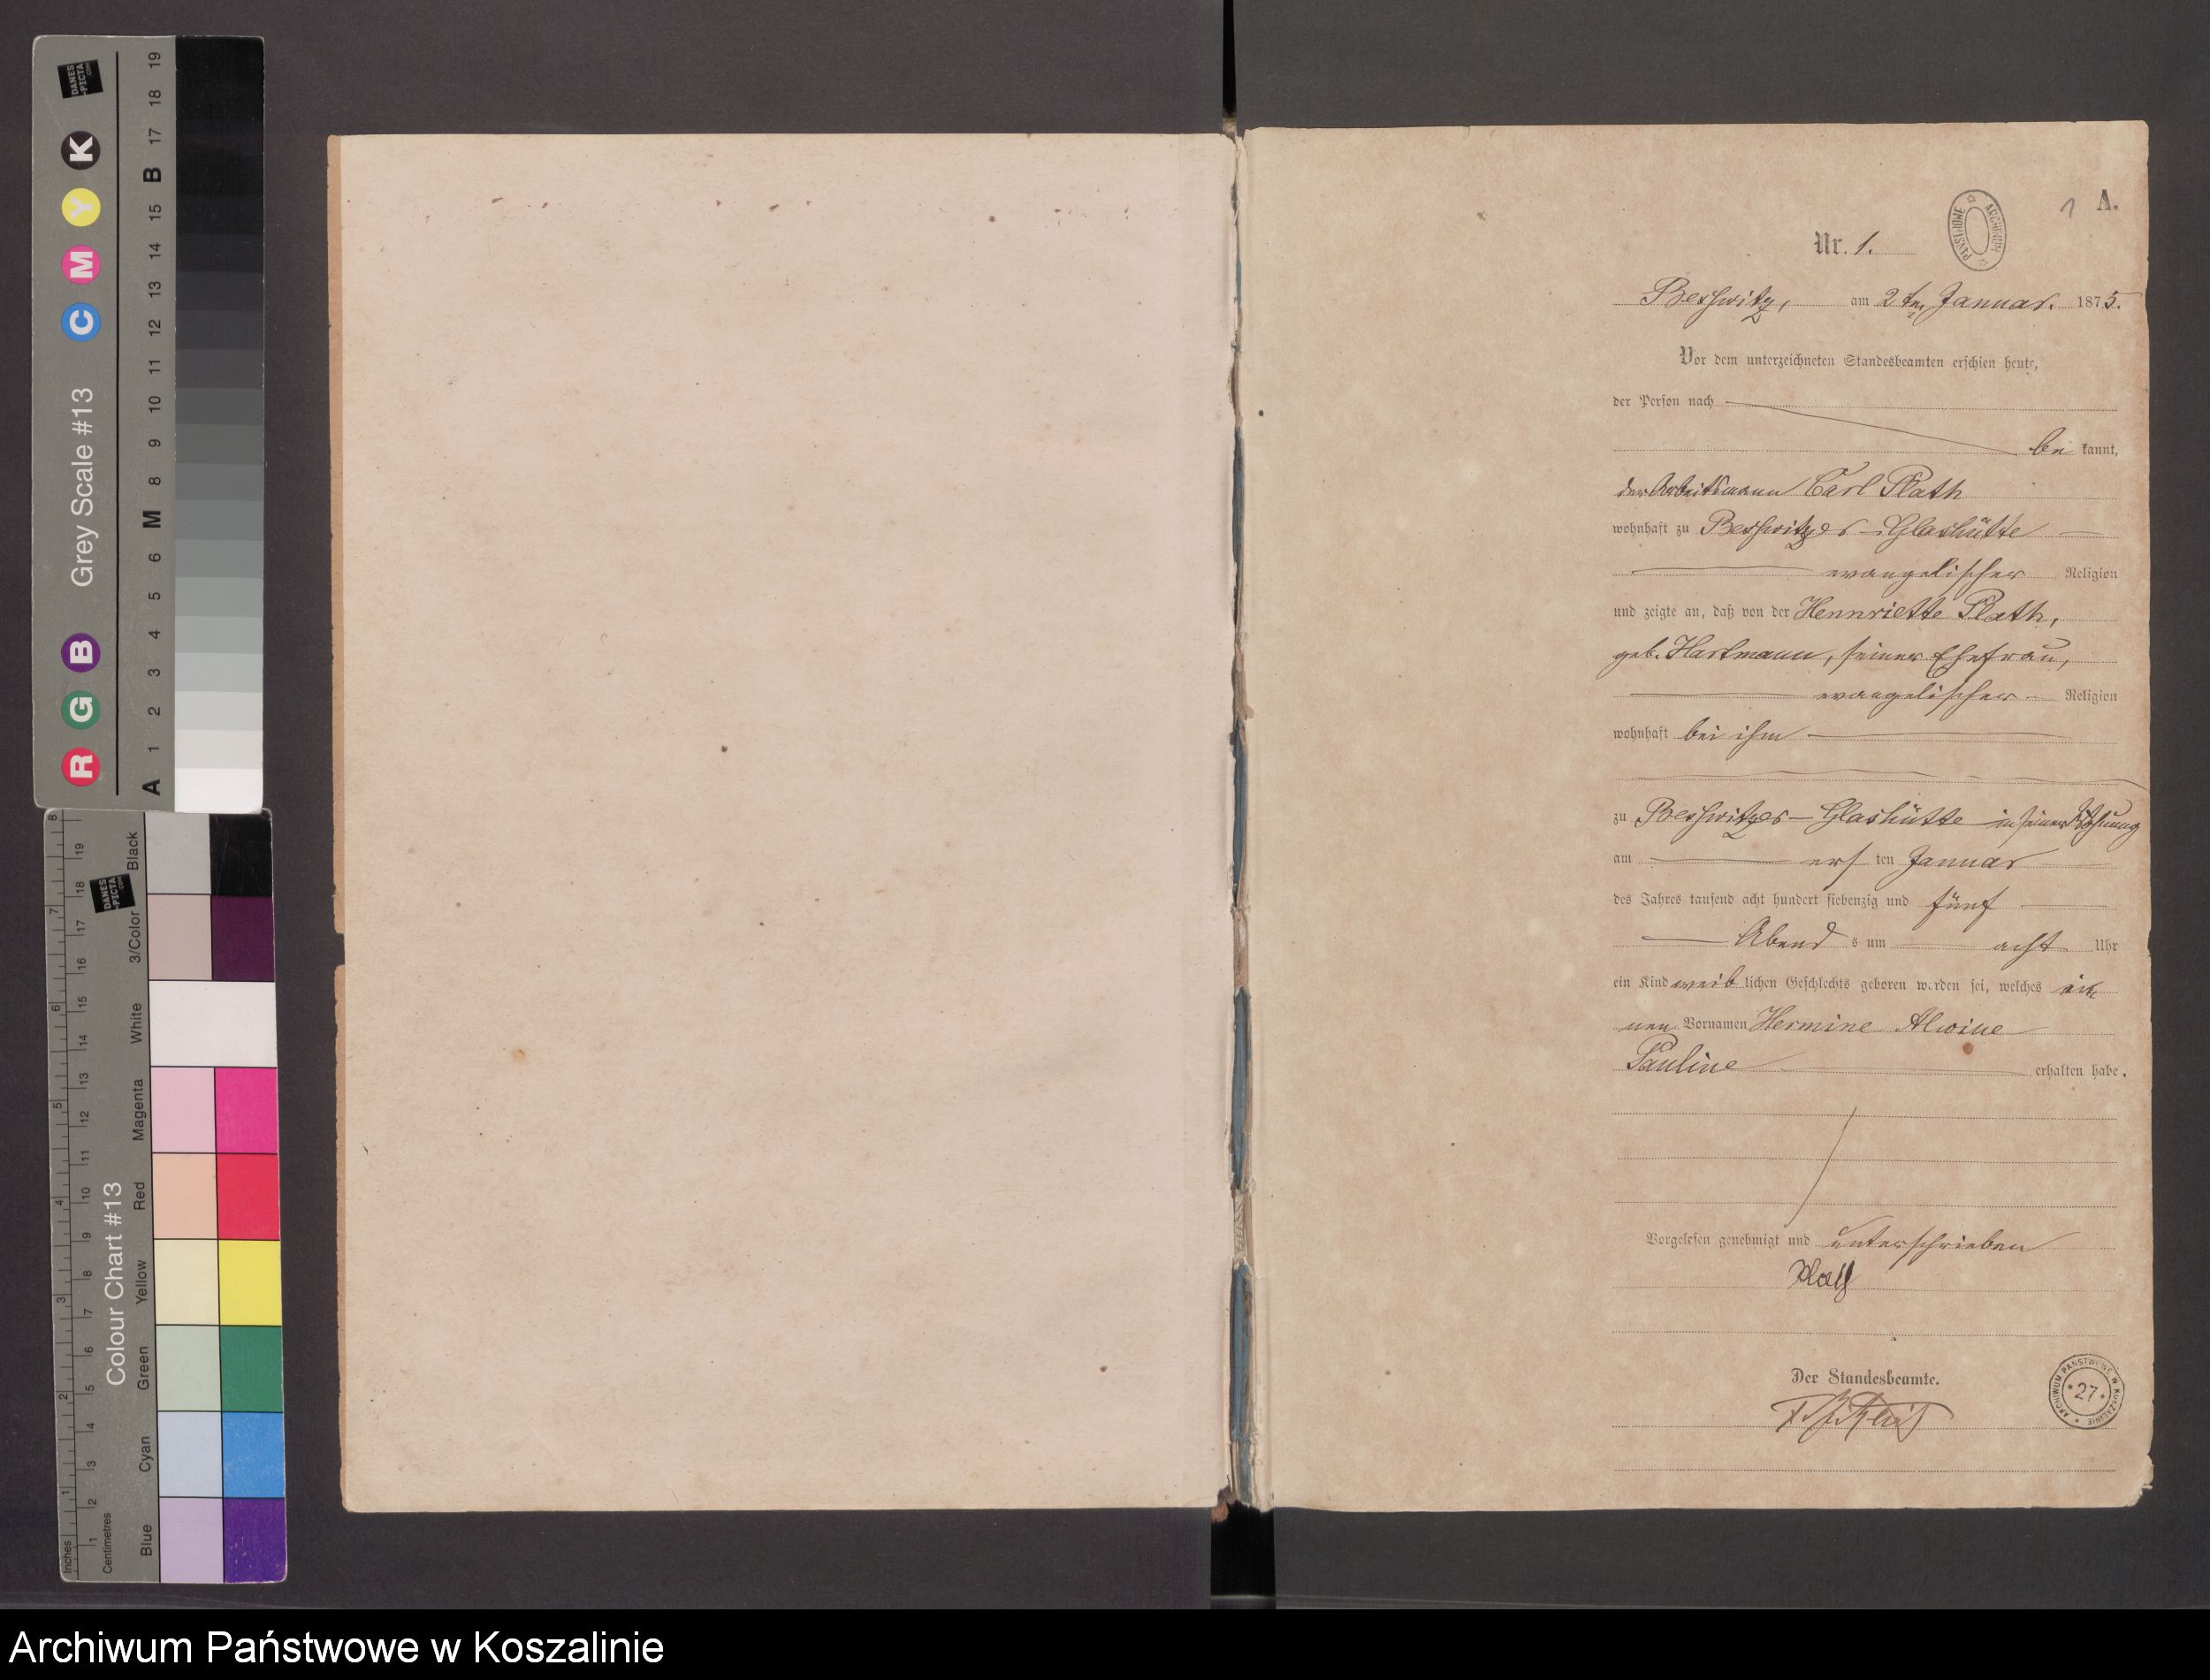 Grey Scale #13
R G B C M Y K
A 1 2 3 4 5 6 M 8 9 10 11 12 13 14 15 B 17 18 19
DANES
-PICTA
.COM
Colour Chart #13
Inches
Centimetres
1 2 3 4 5 6 7 8
1 2 3 4 5 6 7 8 9 10 11 12 13 14 15 16 17 18 19
Blue Cyan Green Yellow Red Magenta White 3/Color Black
DANES
-PICTA
.COM
1 A.
ARCHIWUM PAŃSTWOWE
Nr. 1.
Beßwitz, am 2ten Januar. 1875.
Vor dem unterzeichneten Standesbeamten erschien heute,
der Person nach
be kannt,
der Arbeitsmann Carl Plath
wohnhaft zu Beßwitzer-Glashütte
evangelischer Religion
und zeigte an, daß von der Hennriette Plath,
geb. Hartmann, seiner Ehefrau,
evangelischer Religion
wohnhaft bei ihm
zu Beßwitzer-Glashütte in seiner Wohnung
am ers ten Januar
des Jahres tausend acht hundert siebenzig und fünf
Abend s um acht Uhr
ein Kind weib lichen Geschlechts geboren worden sei, welches
nen Vornamen Hermine Alwine
Pauline erhalten habe.
Vorgelesen genehmigt und unterschrieben
Plath
Der Standesbeamte.
ARCHIWUM PAŃSTWOWE W KOSZALINIE
27
Archiwum Państwowe w Koszalinie